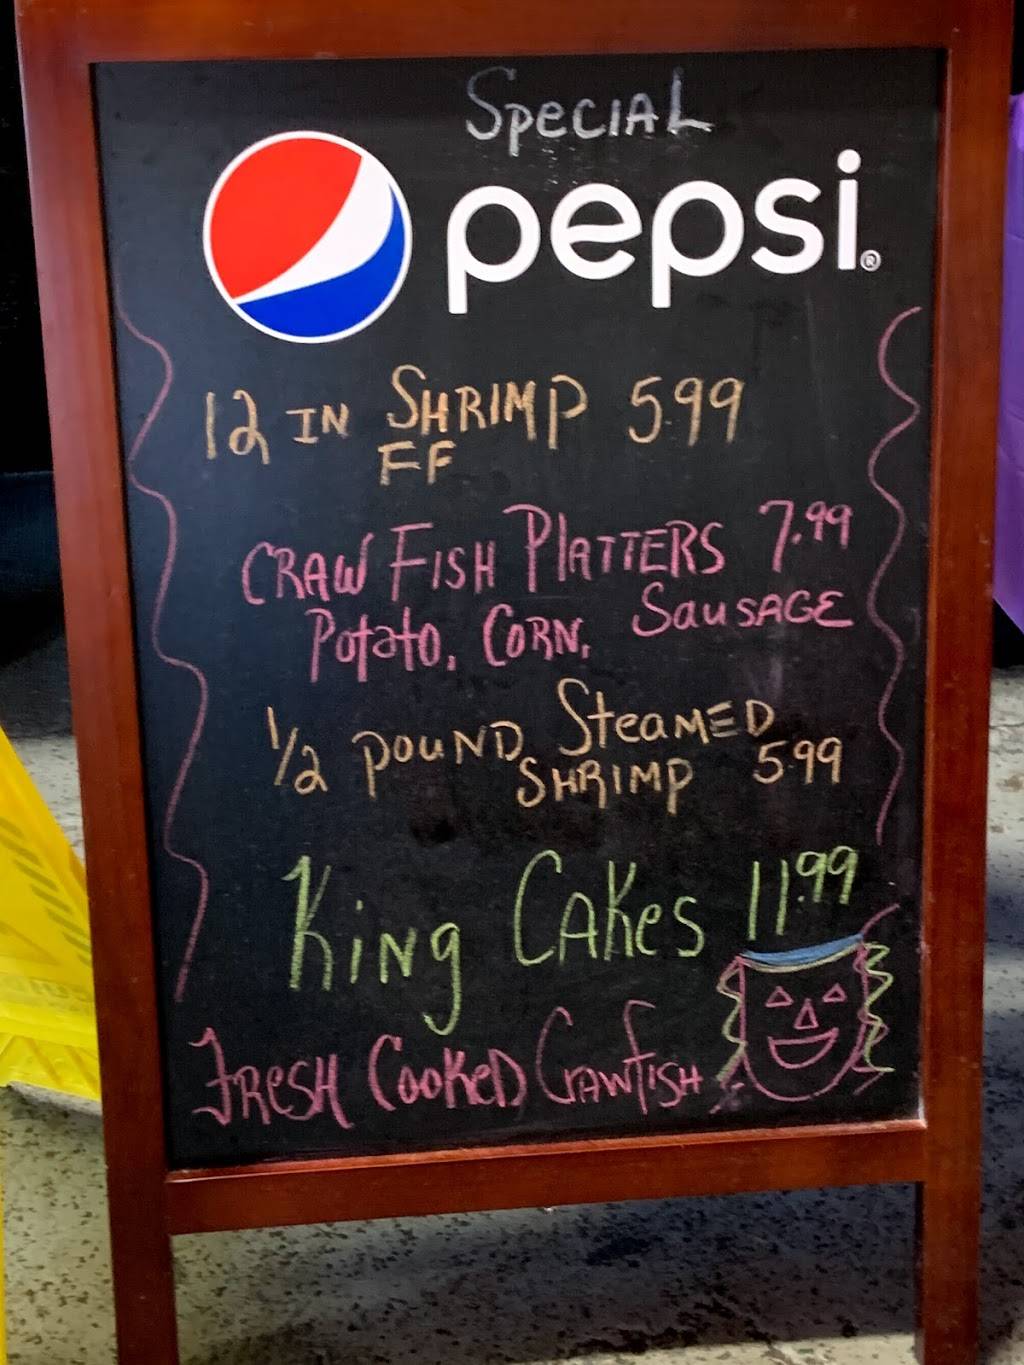 Special
pepsi®
12 IN SHRIMP 5.99
FF
CRAW FISH PLATTERS 7.99
Potato, CORN, SAUSAGE
1/2 POUND STEAMED
SHRIMP 5.99
King CAKes 11.99
FRESH COOKED CRAWFISH